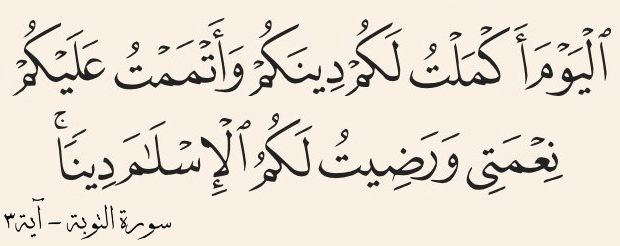 ٱلْيَوْمَ أَكْمَلْتُ لَكُمْ دِينَكُمْ وَأَتْمَمْتُ عَلَيْكُمْ
نِعْمَتِي وَرَضِيتُ لَكُمُ ٱلْإِسْلَٰمَ دِينًاۚ
سورة التوبة - آية ٣